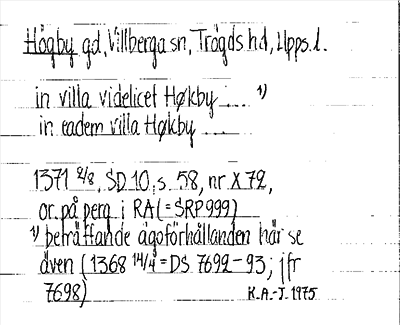 Högby gd, Villberga sn, Trögds hd, Upps. l.
in villa videlicet Høkby .... 1)
in eadem villa Høkby ....
1371 2/8, SD 10, s. 58, nr X 72,
or. på perg. i RA (= SRP 999)
1) beträffande ägoförhållanden här se
även (1368 14/4 = DS 7692-93; jfr
7698)
K.A.-J. 1975